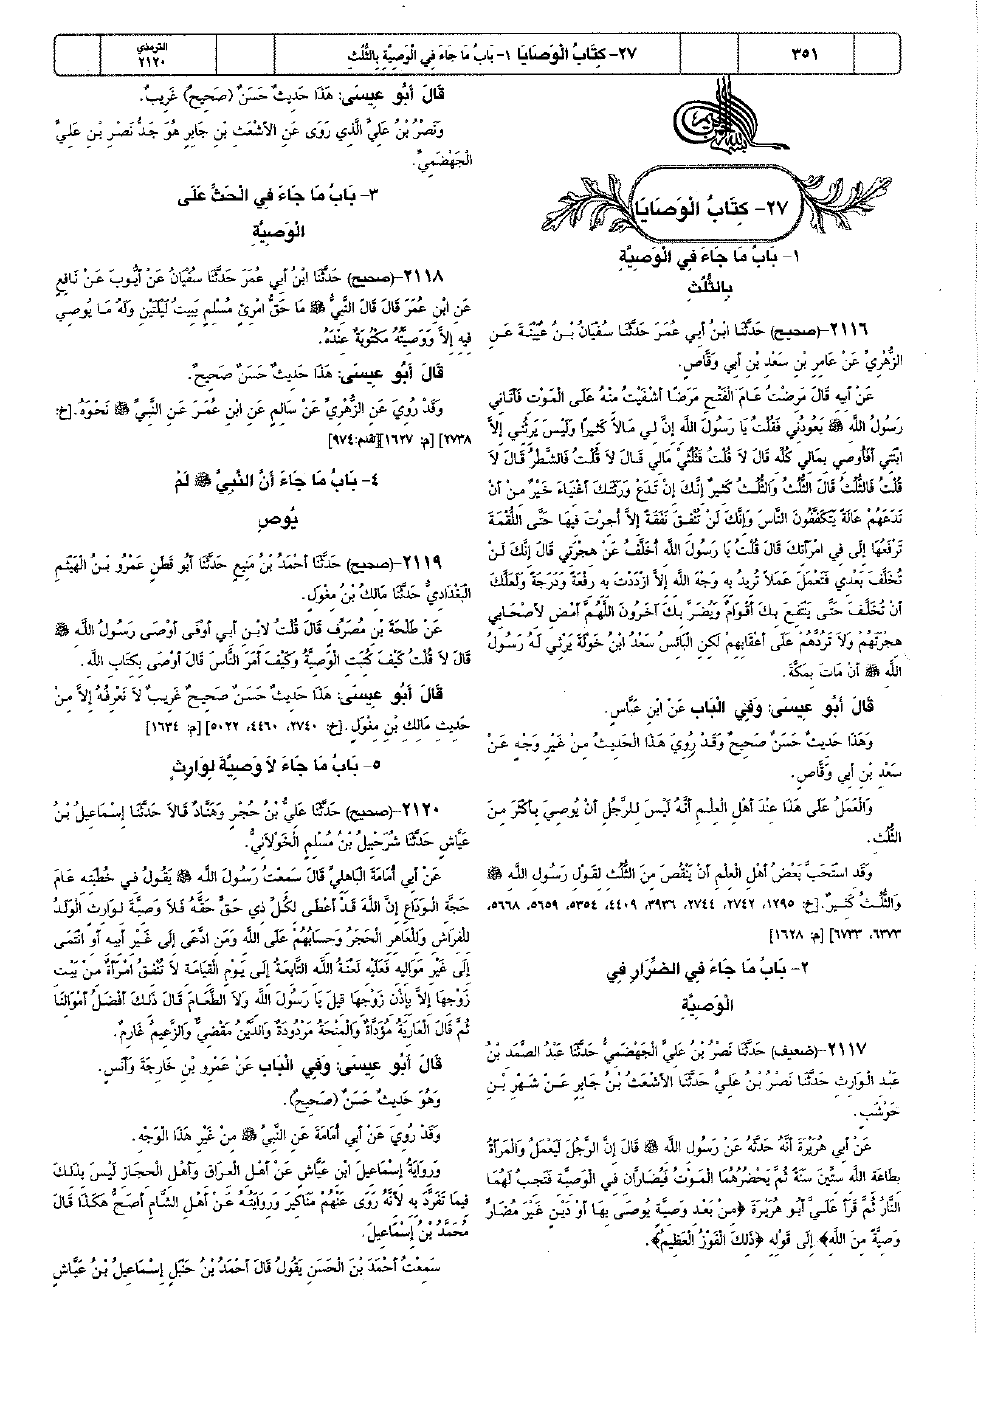 ٣٥١
٢٧- كِتَابُ الْوَصَايَا ١- بَابُ مَا جَاءَ فِي الْوَصِيَّةِ بِالثُّلُثِ
الترمذي
٢١٢٠
٢٧- كِتَابُ الْوَصَايَا
١- بَابُ مَا جَاءَ فِي الْوَصِيَّةِ
بِالثُّلُثِ
٢١١٦-(صحيح) حَدَّثَنَا ابْنُ أَبِي عُمَرَ حَدَّثَنَا سُفْيَانُ بْنُ عُيَيْنَةَ عَنِ
الزُّهْرِيِّ عَنْ عَامِرِ بْنِ سَعْدِ بْنِ أَبِي وَقَّاصٍ.
عَنْ أَبِيهِ قَالَ مَرِضْتُ عَامَ الْفَتْحِ مَرَضًا أَشْفَيْتُ مِنْهُ عَلَى الْمَوْتِ فَأَتَانِي
رَسُولُ اللَّهِ ﷺ يَعُودُنِي فَقُلْتُ يَا رَسُولَ اللَّهِ إِنَّ لِي مَالاً كَثِيرًا وَلَيْسَ يَرِثُنِي إِلاَّ
ابْنَتِي أَفَأُوصِي بِمَالِي كُلِّهِ قَالَ لاَ قُلْتُ فَثُلُثَيْ مَالِي قَالَ لاَ قُلْتُ فَالشَّطْرُ قَالَ لاَ
قُلْتُ فَالثُّلُثُ قَالَ الثُّلُثُ وَالثُّلُثُ كَثِيرٌ إِنَّكَ إِنْ تَدَعْ وَرَثَتَكَ أَغْنِيَاءَ خَيْرٌ مِنْ أَنْ
تَدَعَهُمْ عَالَةً يَتَكَفَّفُونَ النَّاسَ وَإِنَّكَ لَنْ تُنْفِقَ نَفَقَةً إِلاَّ أُجِرْتَ فِيهَا حَتَّى اللُّقْمَةَ
تَرْفَعُهَا إِلَى فِي امْرَأَتِكَ قَالَ قُلْتُ يَا رَسُولَ اللَّهِ أُخَلَّفُ عَنْ هِجْرَتِي قَالَ إِنَّكَ لَنْ
تُخَلَّفَ بَعْدِي فَتَعْمَلَ عَمَلاً تُرِيدُ بِهِ وَجْهَ اللَّهِ إِلاَّ ازْدَدْتَ بِهِ رِفْعَةً وَدَرَجَةً وَلَعَلَّكَ
أَنْ تُخَلَّفَ حَتَّى يَنْتَفِعَ بِكَ أَقْوَامٌ وَيُضَرَّ بِكَ آخَرُونَ اللَّهُمَّ أَمْضِ لأَصْحَابِي
هِجْرَتَهُمْ وَلاَ تَرُدَّهُمْ عَلَى أَعْقَابِهِمْ لَكِنِ الْبَائِسُ سَعْدُ ابْنُ خَوْلَةَ يَرْثِي لَهُ رَسُولُ
اللَّهِ ﷺ أَنْ مَاتَ بِمَكَّةَ.
قَالَ أَبُو عِيسَى: وَفِي الْبَابِ عَنِ ابْنِ عَبَّاسٍ.
وَهَذَا حَدِيثٌ حَسَنٌ صَحِيحٌ وَقَدْ رُوِيَ هَذَا الْحَدِيثُ مِنْ غَيْرِ وَجْهٍ عَنْ
سَعْدِ بْنِ أَبِي وَقَّاصٍ.
وَالْعَمَلُ عَلَى هَذَا عِنْدَ أَهْلِ الْعِلْمِ أَنَّهُ لَيْسَ لِلرَّجُلِ أَنْ يُوصِيَ بِأَكْثَرَ مِنَ
الثُّلُثِ.
وَقَدِ اسْتَحَبَّ بَعْضُ أَهْلِ الْعِلْمِ أَنْ يَنْقُصَ مِنَ الثُّلُثِ لِقَوْلِ رَسُولِ اللَّهِ ﷺ
وَالثُّلُثُ كَثِيرٌ.[خ: ١٢٩٥، ٢٧٤٢، ٢٧٤٤، ٣٩٣٦، ٤٤٠٩، ٥٣٥٤، ٥٦٥٩، ٥٦٦٨،
٦٣٧٣، ٦٧٣٣] [م: ١٦٢٨]
٢- بَابُ مَا جَاءَ فِي الضِّرَارِ فِي
الْوَصِيَّةِ
٢١١٧-(ضعيف) حَدَّثَنَا نَصْرُ بْنُ عَلِيٍّ الْجَهْضَمِيُّ حَدَّثَنَا عَبْدُ الصَّمَدِ بْنُ
عَبْدِ الْوَارِثِ حَدَّثَنَا نَصْرُ بْنُ عَلِيٍّ حَدَّثَنَا الأَشْعَثُ بْنُ جَابِرٍ عَنْ شَهْرِ بْنِ
حَوْشَبٍ.
عَنْ أَبِي هُرَيْرَةَ أَنَّهُ حَدَّثَهُ عَنْ رَسُولِ اللَّهِ ﷺ قَالَ إِنَّ الرَّجُلَ لَيَعْمَلُ وَالْمَرْأَةُ
بِطَاعَةِ اللَّهِ سِتِّينَ سَنَةً ثُمَّ يَحْضُرُهُمَا الْمَوْتُ فَيُضَارَّانِ فِي الْوَصِيَّةِ فَتَجِبُ لَهُمَا
النَّارُ ثُمَّ قَرَأَ عَلَيَّ أَبُو هُرَيْرَةَ ﴿مِنْ بَعْدِ وَصِيَّةٍ يُوصَى بِهَا أَوْ دَيْنٍ غَيْرَ مُضَارٍّ
وَصِيَّةً مِنَ اللَّهِ﴾ إِلَى قَوْلِهِ ﴿ذَلِكَ الْفَوْزُ الْعَظِيمُ﴾.
قَالَ أَبُو عِيسَى: هَذَا حَدِيثٌ حَسَنٌ (صَحِيحٌ) غَرِيبٌ.
وَنَصْرُ بْنُ عَلِيٍّ الَّذِي رَوَى عَنِ الأَشْعَثِ بْنِ جَابِرٍ هُوَ جَدُّ نَصْرِ بْنِ عَلِيٍّ
الْجَهْضَمِيِّ.
٣- بَابُ مَا جَاءَ فِي الْحَثِّ عَلَى
الْوَصِيَّةِ
٢١١٨-(صحيح) حَدَّثَنَا ابْنُ أَبِي عُمَرَ حَدَّثَنَا سُفْيَانُ عَنْ أَيُّوبَ عَنْ نَافِعٍ
عَنِ ابْنِ عُمَرَ قَالَ قَالَ النَّبِيُّ ﷺ مَا حَقُّ امْرِئٍ مُسْلِمٍ يَبِيتُ لَيْلَتَيْنِ وَلَهُ مَا يُوصِي
فِيهِ إِلاَّ وَوَصِيَّتُهُ مَكْتُوبَةٌ عِنْدَهُ.
قَالَ أَبُو عِيسَى: هَذَا حَدِيثٌ حَسَنٌ صَحِيحٌ.
وَقَدْ رُوِيَ عَنِ الزُّهْرِيِّ عَنْ سَالِمٍ عَنِ ابْنِ عُمَرَ عَنِ النَّبِيِّ ﷺ نَحْوَهُ. [خ:
٢٧٣٨] [م: ١٦٢٧][تقدم:٩٧٤]
٤- بَابُ مَا جَاءَ أَنَّ النَّبِيَّ ﷺ لَمْ
يُوصِ
٢١١٩-(صحيح) حَدَّثَنَا أَحْمَدُ بْنُ مَنِيعٍ حَدَّثَنَا أَبُو قَطَنٍ عَمْرُو بْنُ الْهَيْثَمِ
الْبَغْدَادِيُّ حَدَّثَنَا مَالِكُ بْنُ مِغْوَلٍ.
عَنْ طَلْحَةَ بْنِ مُصَرِّفٍ قَالَ قُلْتُ لابْنِ أَبِي أَوْفَى أَوْصَى رَسُولُ اللَّهِ ﷺ
قَالَ لاَ قُلْتُ كَيْفَ كُتِبَتِ الْوَصِيَّةُ وَكَيْفَ أَمَرَ النَّاسَ قَالَ أَوْصَى بِكِتَابِ اللَّهِ.
قَالَ أَبُو عِيسَى: هَذَا حَدِيثٌ حَسَنٌ صَحِيحٌ غَرِيبٌ لاَ نَعْرِفُهُ إِلاَّ مِنْ
حَدِيثِ مَالِكِ بْنِ مِغْوَلٍ.[خ: ٢٧٤٠، ٤٤٦٠، ٥٠٢٢] [م: ١٦٣٤]
٥- بَابُ مَا جَاءَ لاَ وَصِيَّةَ لِوَارِثٍ
٢١٢٠-(صحيح) حَدَّثَنَا عَلِيُّ بْنُ حُجْرٍ وَهَنَّادٌ قَالاَ حَدَّثَنَا إِسْمَاعِيلُ بْنُ
عَيَّاشٍ حَدَّثَنَا شُرَحْبِيلُ بْنُ مُسْلِمٍ الْخَوْلاَنِيُّ.
عَنْ أَبِي أُمَامَةَ الْبَاهِلِيِّ قَالَ سَمِعْتُ رَسُولَ اللَّهِ ﷺ يَقُولُ فِي خُطْبَتِهِ عَامَ
حَجَّةِ الْوَدَاعِ إِنَّ اللَّهَ قَدْ أَعْطَى لِكُلِّ ذِي حَقٍّ حَقَّهُ فَلاَ وَصِيَّةَ لِوَارِثٍ الْوَلَدُ
لِلْفِرَاشِ وَلِلْعَاهِرِ الْحَجَرُ وَحِسَابُهُمْ عَلَى اللَّهِ وَمَنِ ادَّعَى إِلَى غَيْرِ أَبِيهِ أَوِ انْتَمَى
إِلَى غَيْرِ مَوَالِيهِ فَعَلَيْهِ لَعْنَةُ اللَّهِ التَّابِعَةُ إِلَى يَوْمِ الْقِيَامَةِ لاَ تُنْفِقُ امْرَأَةٌ مِنْ بَيْتِ
زَوْجِهَا إِلاَّ بِإِذْنِ زَوْجِهَا قِيلَ يَا رَسُولَ اللَّهِ وَلاَ الطَّعَامَ قَالَ ذَلِكَ أَفْضَلُ أَمْوَالِنَا
ثُمَّ قَالَ الْعَارِيَةُ مُؤَدَّاةٌ وَالْمِنْحَةُ مَرْدُودَةٌ وَالدَّيْنُ مَقْضِيٌّ وَالزَّعِيمُ غَارِمٌ.
قَالَ أَبُو عِيسَى: وَفِي الْبَابِ عَنْ عَمْرِو بْنِ خَارِجَةَ وَأَنَسٍ.
وَهُوَ حَدِيثٌ حَسَنٌ (صَحِيحٌ).
وَقَدْ رُوِيَ عَنْ أَبِي أُمَامَةَ عَنِ النَّبِيِّ ﷺ مِنْ غَيْرِ هَذَا الْوَجْهِ.
وَرِوَايَةُ إِسْمَاعِيلَ ابْنِ عَيَّاشٍ عَنْ أَهْلِ الْعِرَاقِ وَأَهْلِ الْحِجَازِ لَيْسَ بِذَلِكَ
فِيمَا تَفَرَّدَ بِهِ لأَنَّهُ رَوَى عَنْهُمْ مَنَاكِيرَ وَرِوَايَتُهُ عَنْ أَهْلِ الشَّامِ أَصَحُّ هَكَذَا قَالَ
مُحَمَّدُ بْنُ إِسْمَاعِيلَ.
سَمِعْتُ أَحْمَدَ بْنَ الْحَسَنِ يَقُولُ قَالَ أَحْمَدُ بْنُ حَنْبَلٍ إِسْمَاعِيلُ بْنُ عَيَّاشٍ